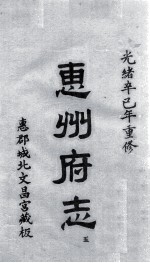 光緒辛巳年重修
惠州府志
五
惠郡城北文昌宮藏板